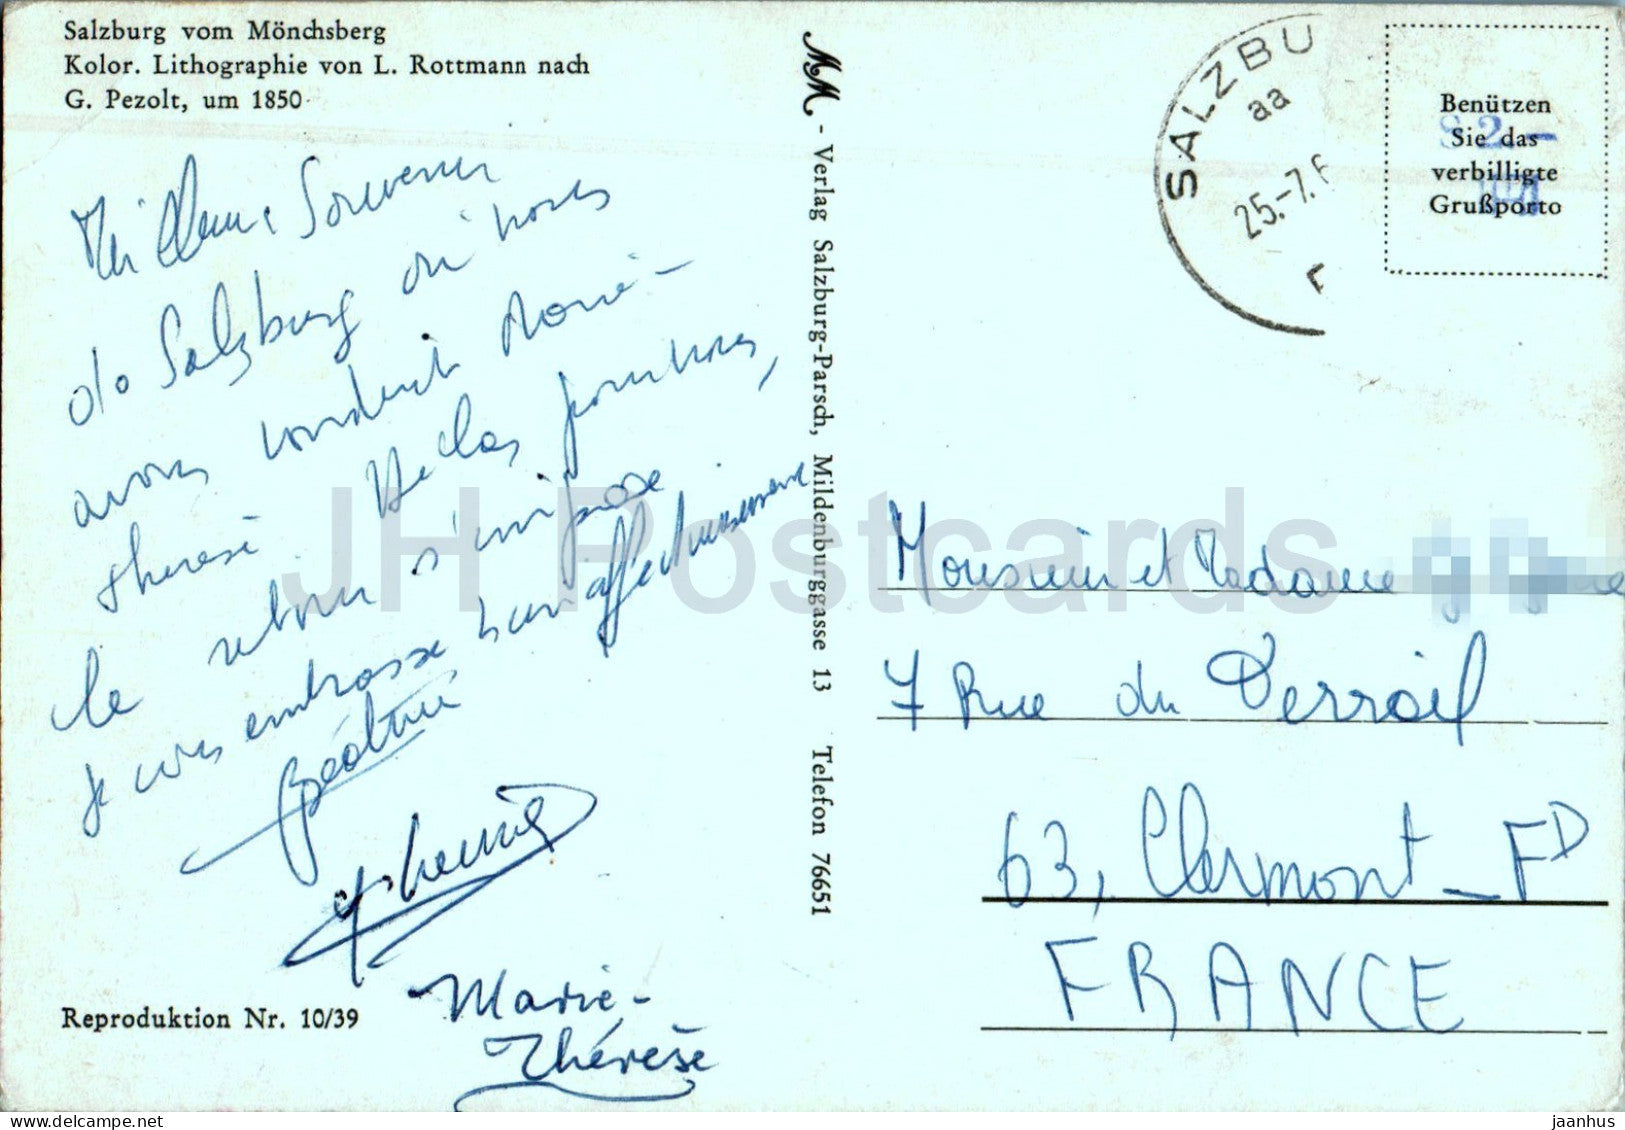 Salzburg vom Mönchsberg
Kolor. Lithographie von L. Rottmann nach
G. Pezolt, um 1850
Mille Souvenir
de Salzburg où nous
avons conduit Marie-
Therese Helas pour nous,
le retour s'impose
Je vous embrasse bien affectueusement
Béatrice
Marie-
Thérèse
Reproduktion Nr. 10/39
MM - Verlag Salzburg-Parsch, Mildenburggasse 13 Telefon 76651
SALZBU
aa
25.-7.6
Benützen
Sie das
verbilligte
Grußporto
S 2 -
Monsieur et Madame
7 Rue du Verroil
63, Clermont-FD
FRANCE
JH Postcards
www.delcampe.net
jaanhus